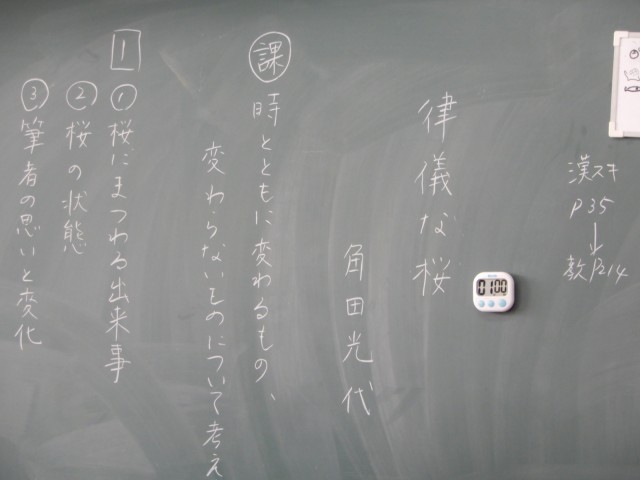 漢スキ
P35
↓
教P.214
律儀な桜
0100
角田光代
課 時とともに変わるもの、
変わらないものについて考え
1
① 桜にまつわる出来事
② 桜の状態
③ 筆者の思いと変化